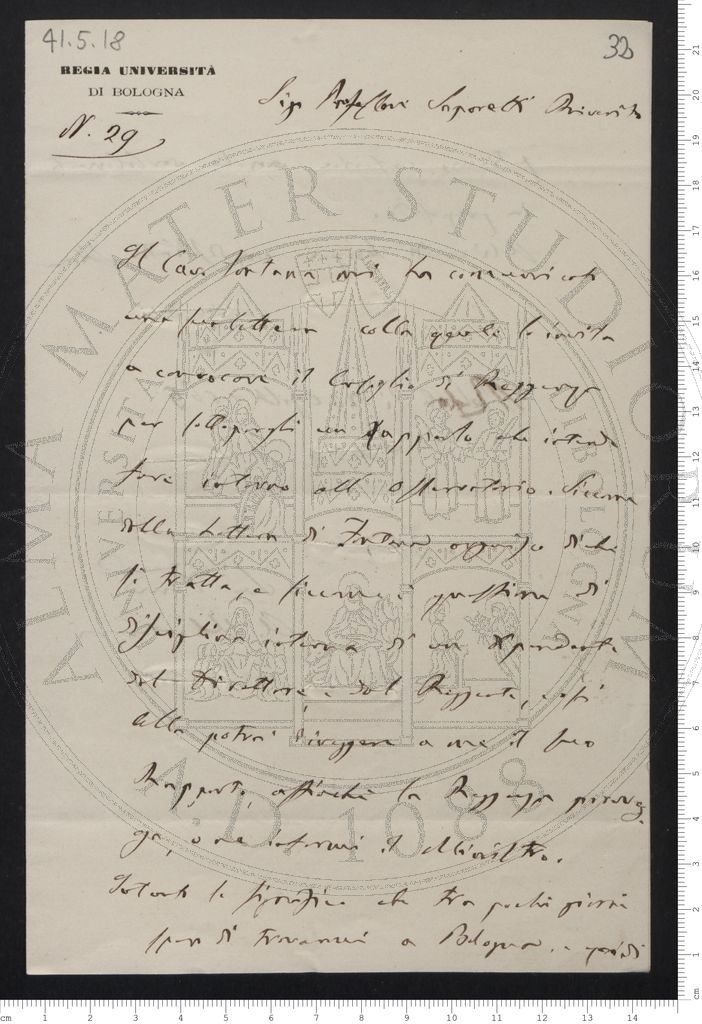 41.5.18
32
REGIA UNIVERSITÀ
DI BOLOGNA
N. 29
Sig. Professore Saporetti Riverito
Il Cav. Fontana mi ha comunicato
una sua lettera colla quale lo invita
a convocare il Consiglio di Reggenza
per sottoporgli un Rapporto che intende
fare intorno all'Osservatorio. Siccome
dalla lettera di Fontana di che
si tratta, e siccome è questione di
disciplina interna di un dipendente
dal Direttore e dal Reggente, così
Ella potrà dirigere a me il suo
Rapporto, affinché la Reggenza provveg-
ga, o ne informi il Ministro.
Intanto le significo che tra pochi giorni
spero di trovarmi a Bologna, e quindi
ALMA MATER STUDIORUM
UNIVERSITÀ DI BOLOGNA
A.D. 1088